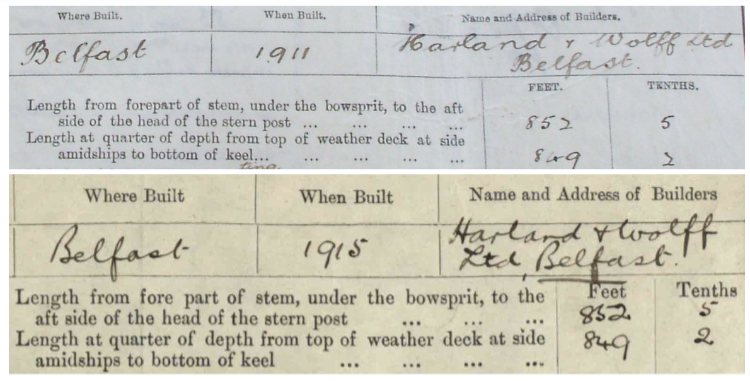 Where Built. When Built. Name and Address of Builders.
Belfast 1911 Harland & Wolff Ltd
Belfast.
FEET. TENTHS.
Length from forepart of stem, under the bowsprit, to the aft
side of the head of the stern post ... ... ... ... 852 5
Length at quarter of depth from top of weather deck at side
amidships to bottom of keel... ... ... ... ... 849 2
Where Built When Built Name and Address of Builders
Belfast 1915 Harland & Wolff
Ltd, Belfast.
Feet Tenths
Length from fore part of stem, under the bowsprit, to the
aft side of the head of the stern post ... ... ... 852 5
Length at quarter of depth from top of weather deck at side
amidships to bottom of keel ... ... ... ... 849 2